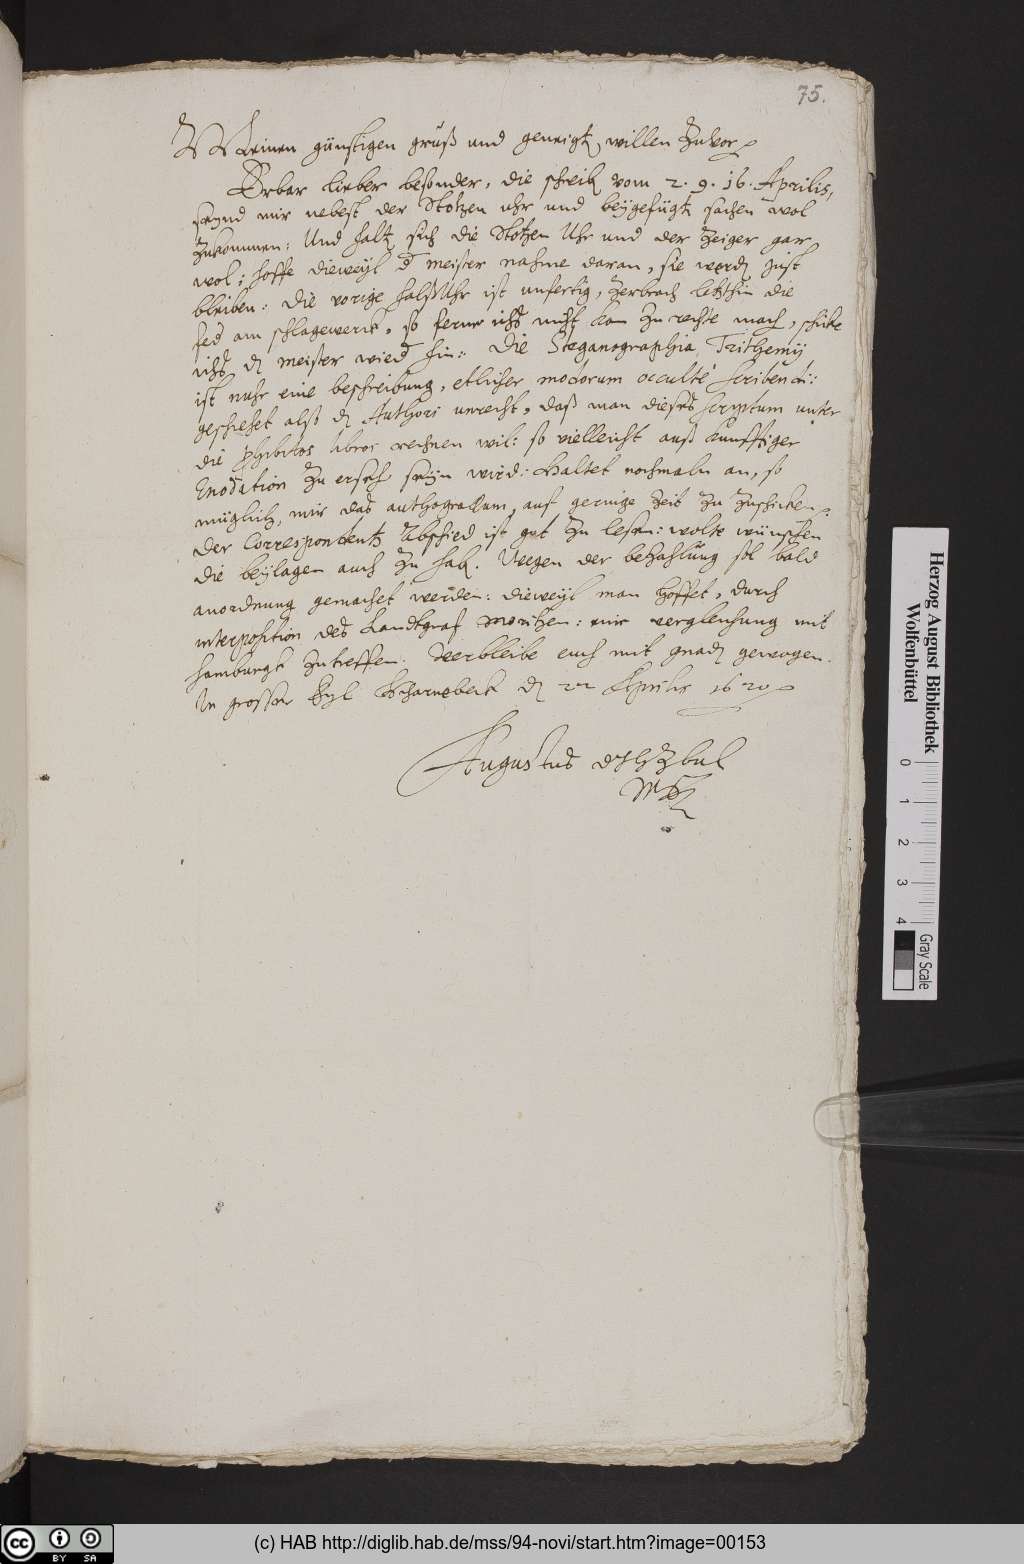 75.
Meinen günstigen gruß und geneigt. willen Zuvor
Erbar lieber besonder, die schreib. vom 2. 9. 16. Aprilis,
seynd mir nebest der Stotzen uhr und beygefügt. sachen wol
Zukommen: Und halt. sich die Stotzen Uhr und der Zeiger gar
wol; hoffe dieweyl d meister nahme daran, sie werd. just
bleiben: die vorige halßUhr ist unfertig, Zerbrach letzthin die
fed am schlagewerck, so ferne ichs nicht kan Zu rechte mach., schicke
ichs d. meister wied hin: Die Steganographia Trithemij
ist nuhr eine beschreibung, etlicher modorum occultè scribendi:
geschehet alß d. Authori unrecht, daß man dieses scriptum unter
die phibitos libros rechnen wil: so vielleicht auß kunfftiger
Enodation Zu erseh. seyn wird: Haltet nochmaln an, so
müglich, mir das authographum, auf geringe Zeit Zu Zuschicken:
Der Correspondentz Abschied ist gut Zu lesen: wolte wünschen
die beylagen auch Zu hab. Wegen der bezahlung sol bald
anordnung gemachet werden: dieweyl man hoffet, durch
interposition des Landtgraf Moritzen: eine vergleichung mit
Hamburgk Zutreffen. Verbleibe euch mit gnad. gewogen.
In grosser Eyl Scharnebeck d. 22 Aprilis 1620
Augustus
Herzog August Bibliothek
Wolfenbüttel
0 1 2 3 4
Gray Scale
cc BY SA
(c) HAB http://diglib.hab.de/mss/94-novi/start.htm?image=00153